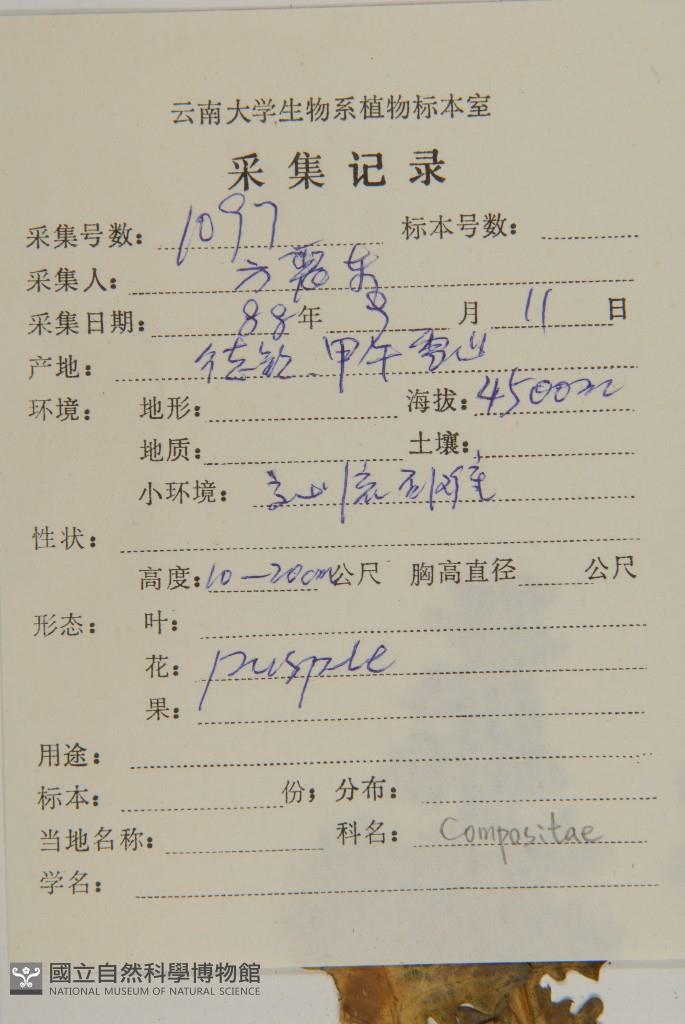 云南大学生物系植物标本室
采集记录
采集号数： 1097 标本号数：
采集人： 方 东
采集日期： 88 年 9 月 11 日
产地： 德钦、甲午雪山
环境： 地形： 海拔：4500m
地质： 土壤：
小环境： 高山流石滩
性状：
高度：10-20cm公尺 胸高直径 公尺
形态： 叶：
花： purple
果：
用途：
标本： 份；分布：
当地名称： 科名： Compositae
学名：
國立自然科學博物館
NATIONAL MUSEUM OF NATURAL SCIENCE